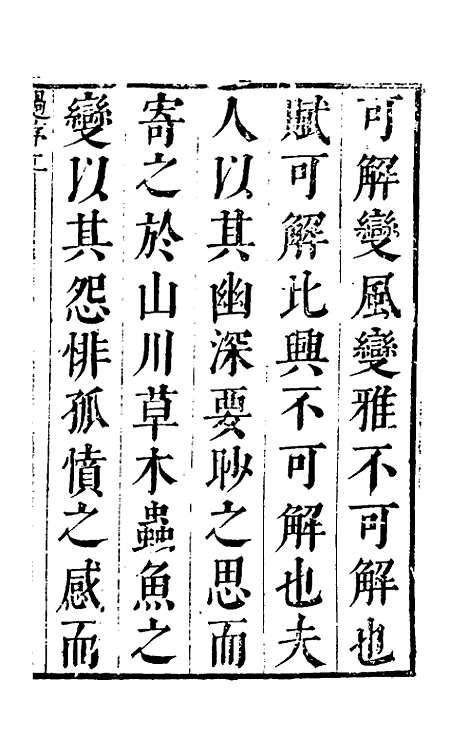 可解變風變雅不可解也
賦可解比興不可解也夫
人以其幽深要眇之思而
寄之於山川草木蟲魚之
變以其怨悱孤憤之感而